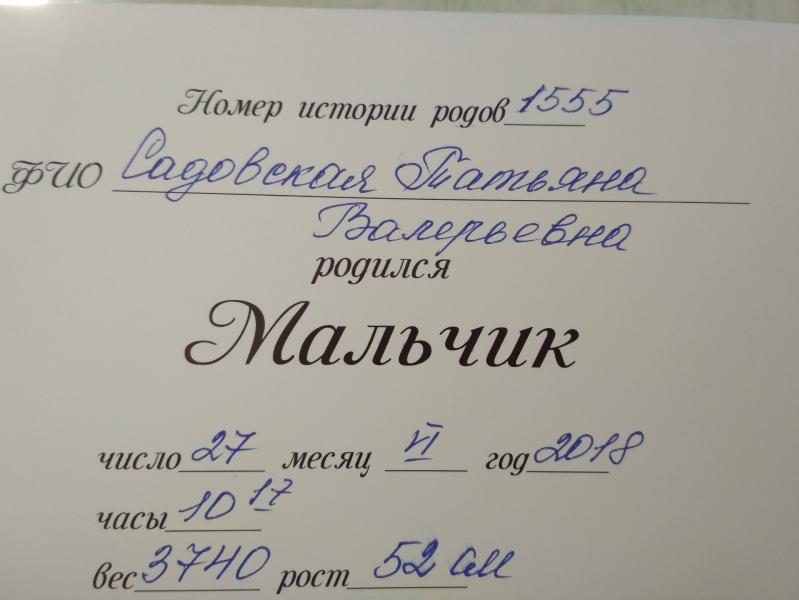 Номер истории родов 1555
ФИО Садовская Татьяна
Валерьевна
родился
Мальчик
число 27 месяц VI год 2018
часы 10 17
вес 3740 рост 52 см